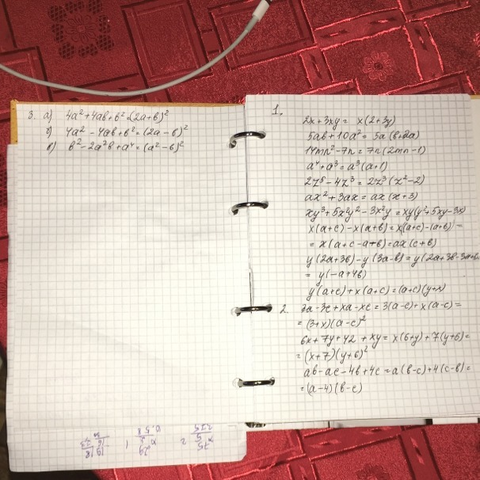 3. а) 4a²+4ab+b²=(2a+b)²
б) 4a²-4ab+b²=(2a-b)²
в) b²-2a²b+a⁴=(a²-b)²
1.
2x+3xy = x(2+3y)
5ab+10a² = 5a(b+2a)
14mn²-7n = 7n(2mn-1)
a⁴+a³ = a³(a+1)
2z⁵-4z³ = 2z³(z²-2)
ax²+3ax = ax(x+3)
xy³+5x²y²-3x²y = xy(y²+5xy-3x)
x(a+c)-x(a+b)=x(a+c)-(a+b) =
= x(a+c-a+b)=ax(c+b)
y(2a+3b)-y(3a-b)=y(2a+3b-3a+b)
= y(-a+4b)
y(a+c)+x(a+c)=(a+c)(y+x)
2. 3a-3c+xa-xc = 3(a-c)+x(a-c)=
= (3+x)(a-c)²
6x+7y+42+xy = x(6+y)+7(y+6)=
= (x+7)(y+6)²
ab-ac-4b+4c = a(b-c)+4(c-b)=
= (a-4)(b-c)